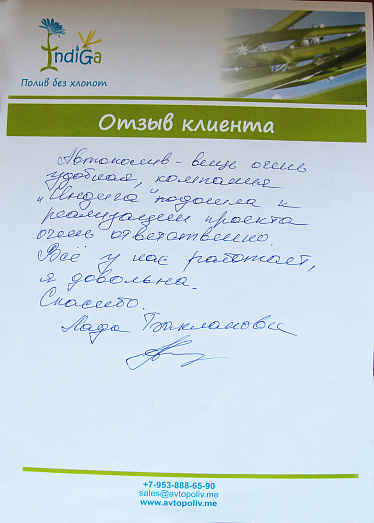 IndiGa
Полив без хлопот
Отзыв клиента
Автополив - вещь очень
удобная, компания
"Индига" подошла к
реализации проекта
очень ответственно.
Всё у нас работает,
я довольна.
Спасибо.
Лада Бакланова
+7-953-888-65-90
sales@avtopoliv.me
www.avtopoliv.me